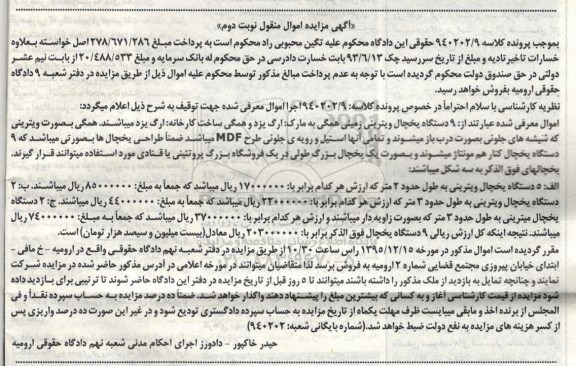 «آگهی مزایده اموال منقول نوبت دوم»
بموجب پرونده کلاسه ۹۴۰۲۰۲/۹ حقوقی این دادگاه محکوم علیه نگین محبوبی راد محکوم است به پرداخت مبلغ ۲۷۸/۶۷۱/۲۸۶ اصل خواسته بعلاوه
خسارات تاخیر تادیه و مبلغ از تاریخ سررسید چک ۹۳/۶/۱۳ بابت خسارت دادرسی در حق محکوم له بانک سرمایه و مبلغ ۲۰/۴۸۸/۵۳۳ از بابت نیم عشر
دولتی در حق صندوق دولت محکوم گردیده است با توجه به عدم پرداخت مبالغ مذکور توسط محکوم علیه اموال ذیل از طریق مزایده در دفتر شعبه ۹ دادگاه
حقوقی ارومیه بفروش خواهد رسید.
نظریه کارشناسی با سلام احتراماً در خصوص پرونده کلاسه: ۹۴۰۲۰۲/۹ اجرا اموال معرفی شده جهت توقیف به شرح ذیل اعلام میگردد:
اموال معرفی شده عبارتند از: ۹ دستگاه یخچال ویترینی زمینی همگی به مارک: ارگ یزد و همگی ساخت کارخانه: ارگ یزد میباشند. همگی بصورت ویترینی
که شیشه های جلوئی بصورت درب باز میشوند و تمامی آنها استیل و رویه ی جلوئی طرح MDF میباشد ضمناً طراحی یخچال ها بصورتی میباشد که ۹
دستگاه یخچال کنار هم مونتاژ میشوند و بصورت یک یخچال بزرگ طولی در یک فروشگاه بزرگ پروتئینی یا قنادی مورد استفاده میتوانند قرار گیرند.
یخچالهای فوق الذکر به سه شکل میباشند:
الف: ۵ دستگاه یخچال ویترینی به طول حدود ۲ متر که ارزش هر کدام برابر با: ۱۷۰۰۰۰۰۰ ریال میباشد که جمعاً به مبلغ: ۸۵۰۰۰۰۰۰ ریال میباشند. ب: ۲
دستگاه یخچال ویترینی به طول حدود ۳ متر که ارزش هر کدام برابر با: ۲۲۰۰۰۰۰۰ ریال میباشد که جمعاً به مبلغ: ۴۴۰۰۰۰۰۰ ریال میباشند. ج: ۲ دستگاه
یخچال ویترینی به طول حدود ۳ متر که بصورت زاویه دار میباشند و ارزش هر کدام برابر با: ۳۷۰۰۰۰۰۰ ریال میباشد که جمعاً به مبلغ: ۷۴۰۰۰۰۰۰ ریال
میباشند. نتیجه اینکه کل ارزش ریالی ۹ دستگاه یخچال فوق الذکر برابر با: ۲۰۳۰۰۰۰۰۰ ریال معادل(بیست میلیون و سیصد هزار تومان) است.
مقرر گردیده است اموال مذکور در مورخه ۱۳۹۵/۱۲/۱۵ راس ساعت ۱۰/۳۰ از طریق مزایده در دفتر شعبه نهم دادگاه حقوقی واقع در ارومیه - خ مافی -
ابتدای خیابان پیروزی مجتمع قضایی شماره ۲ ارومیه به فروش برسد لذا متقاضیان میتوانند در مورخه اعلامی در آدرس مذکور حاضر شده در مزایده شرکت
نمایند و چنانچه تمایل به بازدید از ملک مذکور را داشته باشند میتوانند تا ۵ روز قبل از تاریخ مزایده در دفتر این دادگاه حاضر شوند تا ترتیبی برای بازدید داده
شود مزایده از قیمت کارشناسی آغاز و به کسانی که بیشترین مبلغ را پیشنهاد دهند واگذار خواهد شد. ضمناً ده درصد مزایده به حساب سپرده نقداً و فی
المجلس از برنده اخذ و مابقی میبایست ظرف مهلت یکماه از تاریخ مزایده به حساب سپرده دادگستری تودیع شود و در غیر این صورت ده درصد واریزی پس
از کسر هزینه های مزایده به نفع دولت ضبط خواهد شد.(شماره بایگانی شعبه: ۹۴۰۲۰۲)
حیدر خاکپور - دادورز اجرای احکام مدنی شعبه نهم دادگاه حقوقی ارومیه